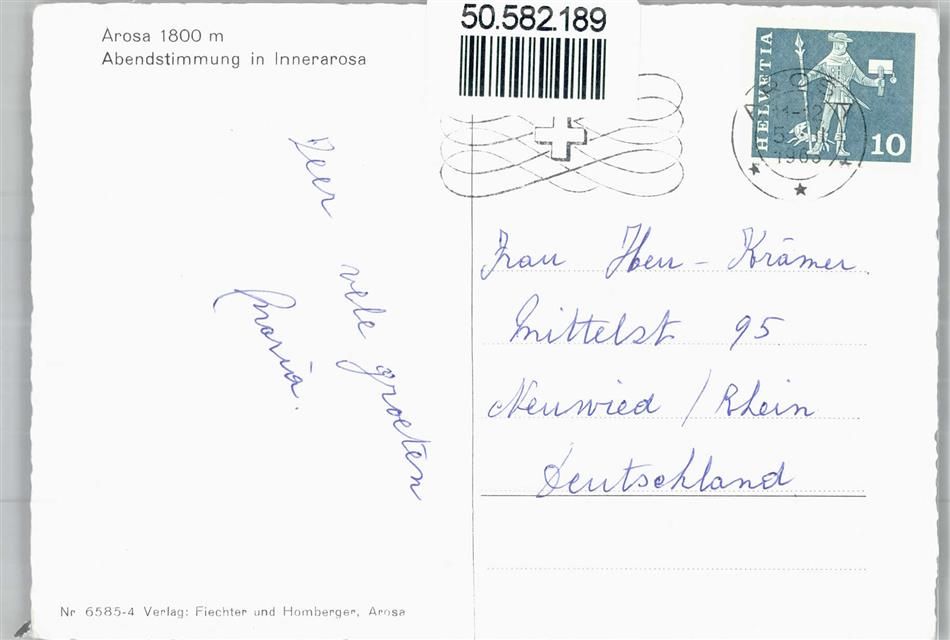 50.582.189
Arosa 1800 m
Abendstimmung in Innerarosa
HELVETIA
10
AROSA
Zeer
vele groeten
Maria.
Frau Herr - Krämer
Mittelst 95
Neuwied / Rhein
Deutschland
Nr 6585-4 Verlag: Fiechter und Homberger, Arosa